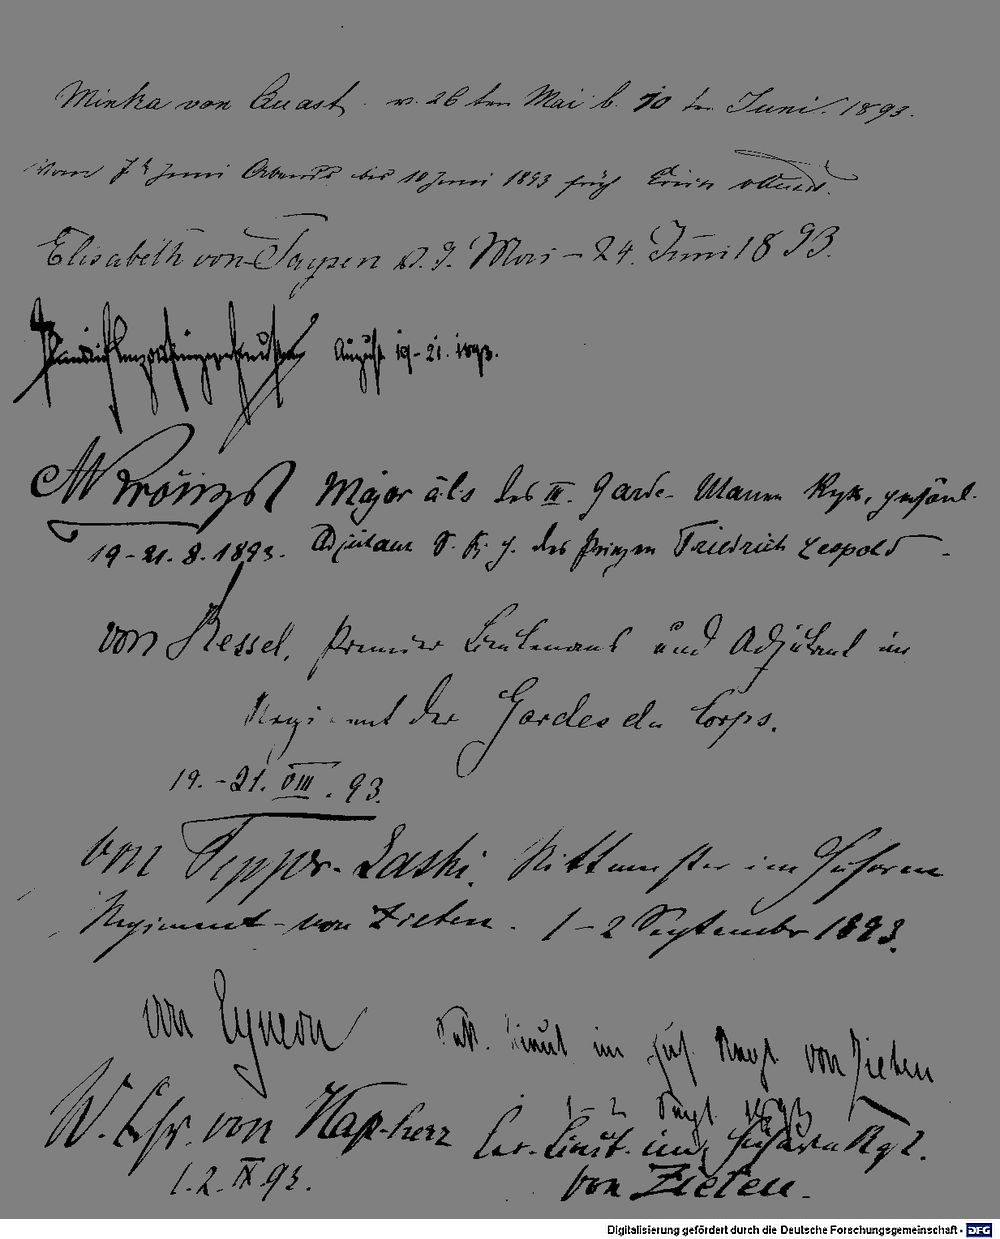 Minka von Quast. v. 26ten Mai b. 10ten Juni. 1893.
Vom 7t Juni Abends bis 10 Juni 1893 früh
Elisabeth von Taysen v. 9. Mai – 24. Juni 1893.
August 19–21. 1893.
Major à la s. des III. Garde-Ulanen Rgts, persönl.
19–21. 8. 1893. Adjutant S. K. H. des Prinzen Friedrich Leopold –
von Kessel, Premier Lieutenant und Adjutant im
Regiment der Gardes du Corps.
19.–21. VIII. 93.
von Tepper-Laski, Rittmeister im Husaren
Regiment – von Zieten. 1–2 September 1893.
von Eynern Sek. Lieut im Hus. Regt von Zieten
1–2 Sept. 1893
W. Frhr. von Hapherr Sec. Lieut. im Husaren Rgt.
1.2. IX 93. von Zieten.
Digitalisierung gefördert durch die Deutsche Forschungsgemeinschaft - DFG